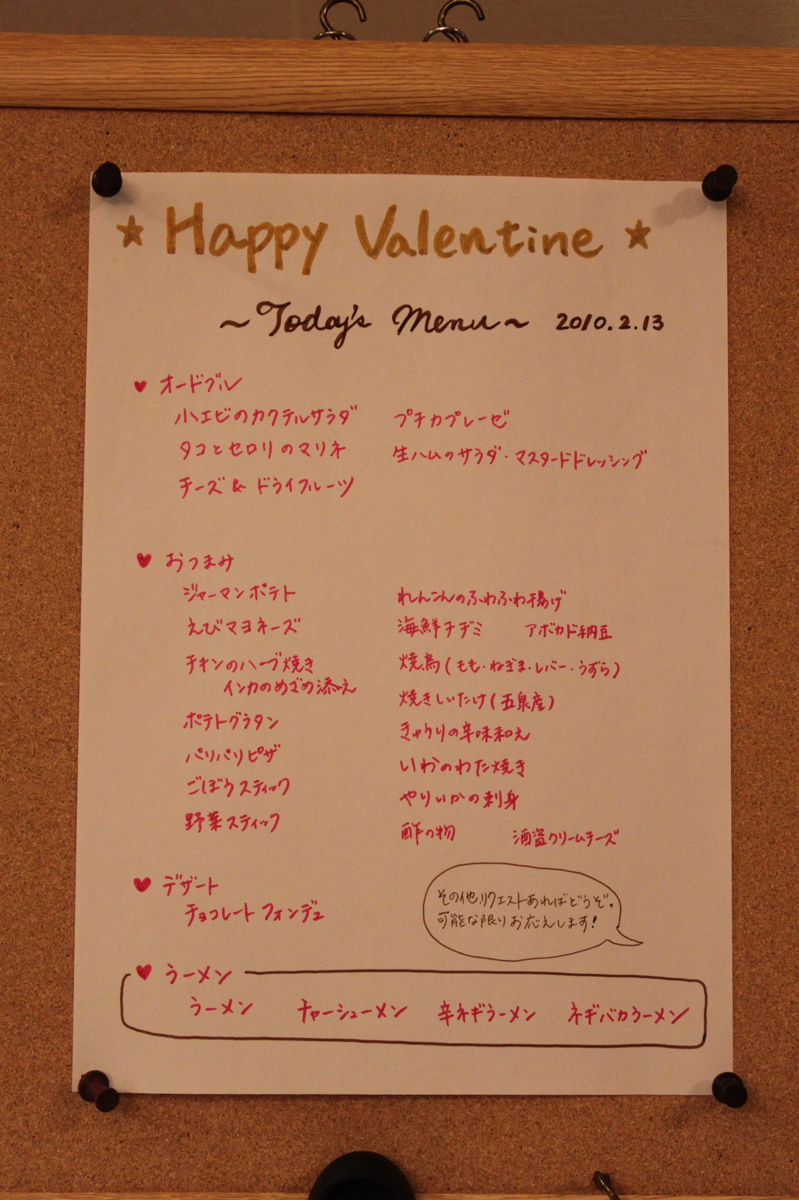 ★ Happy Valentine ★
~Today's Menu~ 2010.2.13
♥ オードブル
小エビのカクテルサラダ
タコとセロリのマリネ
チーズ & ドライフルーツ
プチカプレーゼ
生ハムのサラダ・マスタードドレッシング
♥ おつまみ
ジャーマンポテト
えびマヨネーズ
チキンのハーブ焼き
インカのめざめ添え
ポテトグラタン
パリパリピザ
ごぼうスティック
野菜スティック
れんこんのふわふわ揚げ
海鮮チヂミ アボカド納豆
焼鳥(もも・ねぎま・レバー・うずら)
焼きしいたけ(五泉産)
きゅうりの辛味和え
いかのわた焼き
やりいかの刺身
酢の物 酒盗クリームチーズ
♥ デザート
チョコレートフォンデュ
その他リクエストあればどうぞ。
可能な限りお応えします!
♥ ラーメン
ラーメン チャーシューメン 辛ネギラーメン ネギバカラーメン